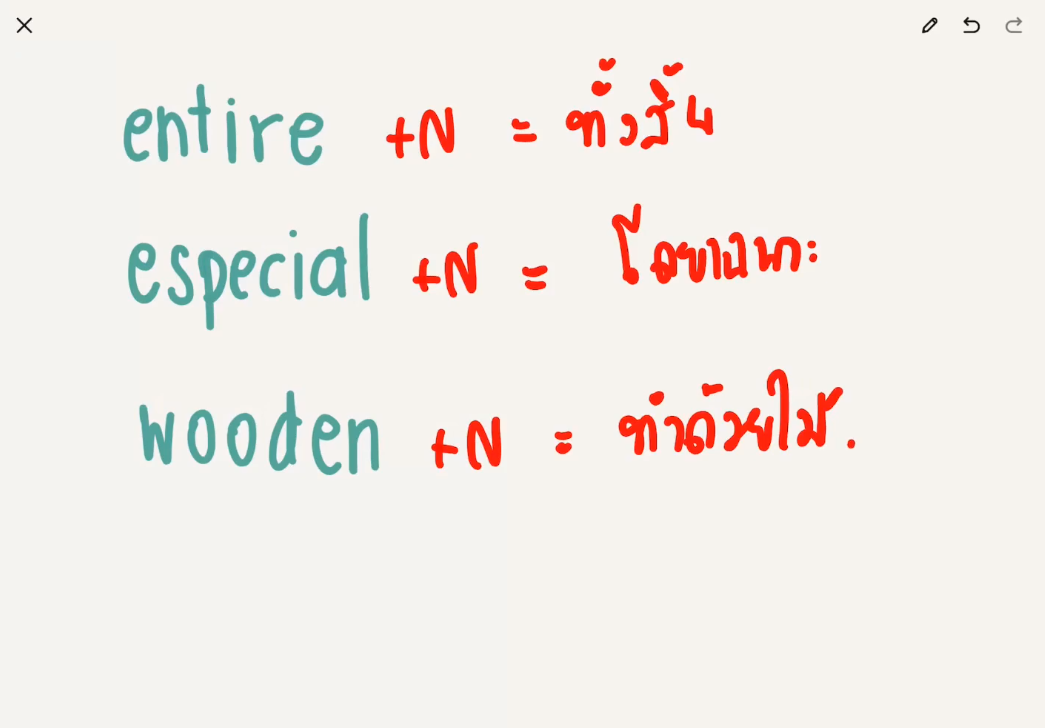 entire +N = ทั้งสิ้น
especial +N = โดยเฉพาะ
wooden +N = ทำด้วยไม้.